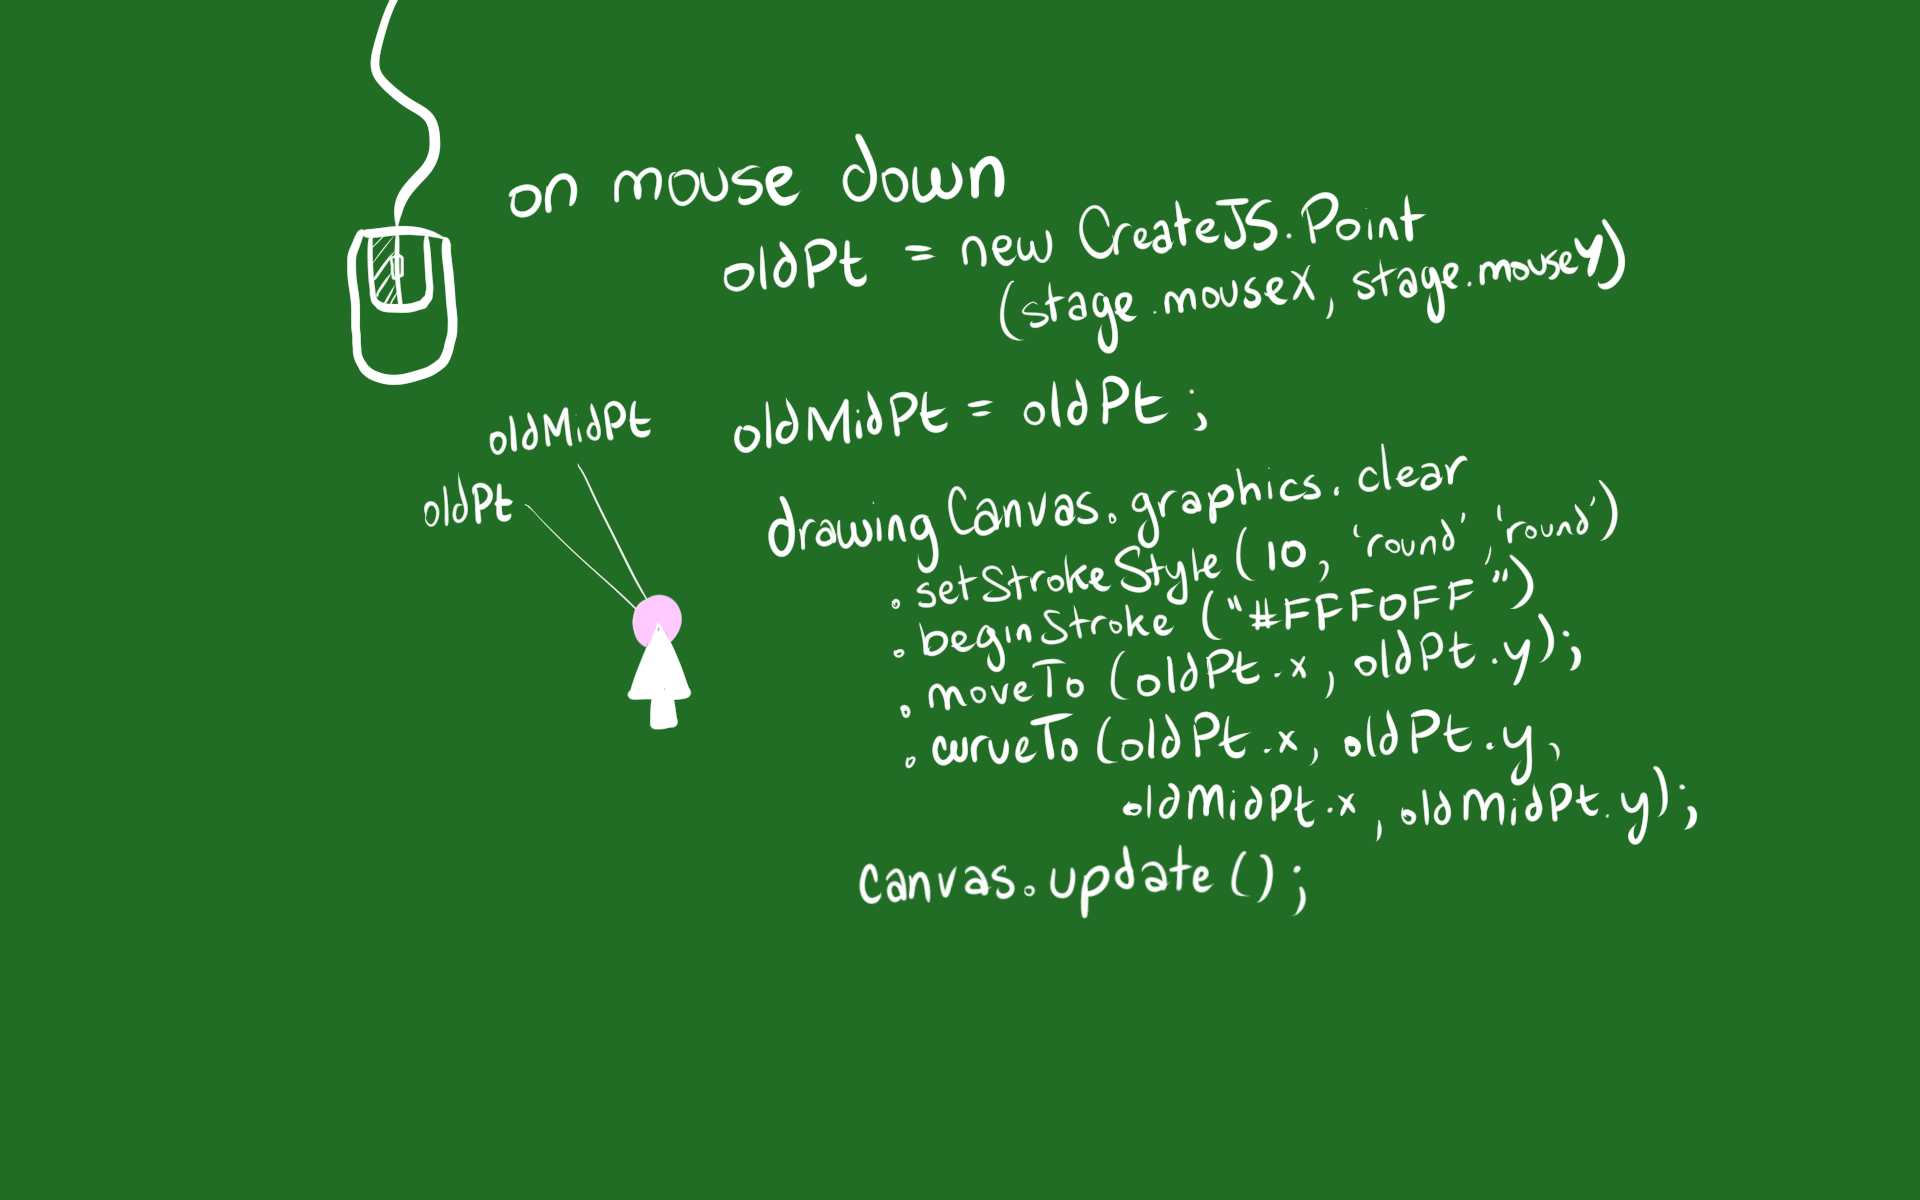 on mouse down
oldPt = new CreateJS.Point
(stage.mouseX, stage.mouseY)
oldMidPt = oldPt ;
oldMidPt
oldPt
drawingCanvas.graphics.clear
.setStrokeStyle (10, 'round', 'round')
.beginStroke ("#FFF0FF")
.moveTo (oldPt.x, oldPt.y);
.curveTo (oldPt.x, oldPt.y,
oldMidPt.x, oldMidPt.y);
canvas.update();